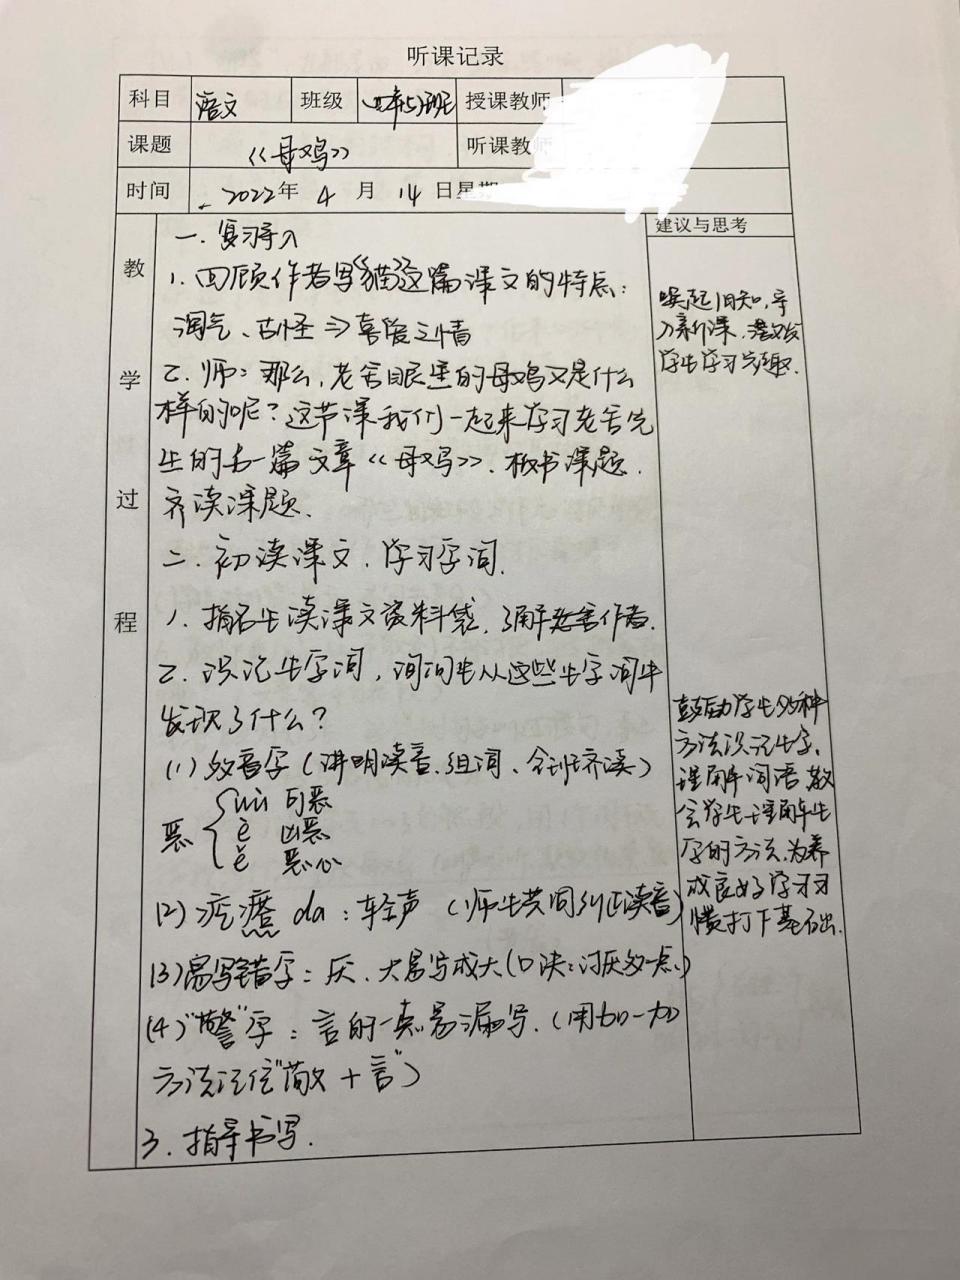 听课记录
科目 语文 班级 授课教师
课题 《母鸡》 听课教师
时间 2022年 4 月 14 日星期
建议与思考
教学过程
一.复习导入
1.回顾作者写《猫》这篇课文的特点:
淘气、古怪⇒喜爱之情
2.师:那么,老舍眼里的母鸡又是什么
样的呢?这节课我们一起来学习老舍先
生的另一篇文章《母鸡》.板书课题.
齐读课题.
二.初读课文.学习字词.
1.指名生读课文资料袋,了解老舍作者.
2.识记生字词,询问生从这些生字词中
发现了什么?
(1)多音字(讲明读音、组词、全班齐读)
恶 { wù 可恶
è 凶恶
ě 恶心
(2)疙瘩 da:轻声(师生共同纠正读音)
(3)易写错字:厌.犬易写成大(口决:讨厌多一点.)
(4)"警"字:言的一点易漏写.(用加一加
方法记住"敬+言")
3.指导书写.
唤起旧知,导
入新课.激发
学生学习兴趣.
鼓励学生多种
方法识记生字,
理解词语,教
会学生理解生
字的方法,为养
成良好学习习
惯打下基础.